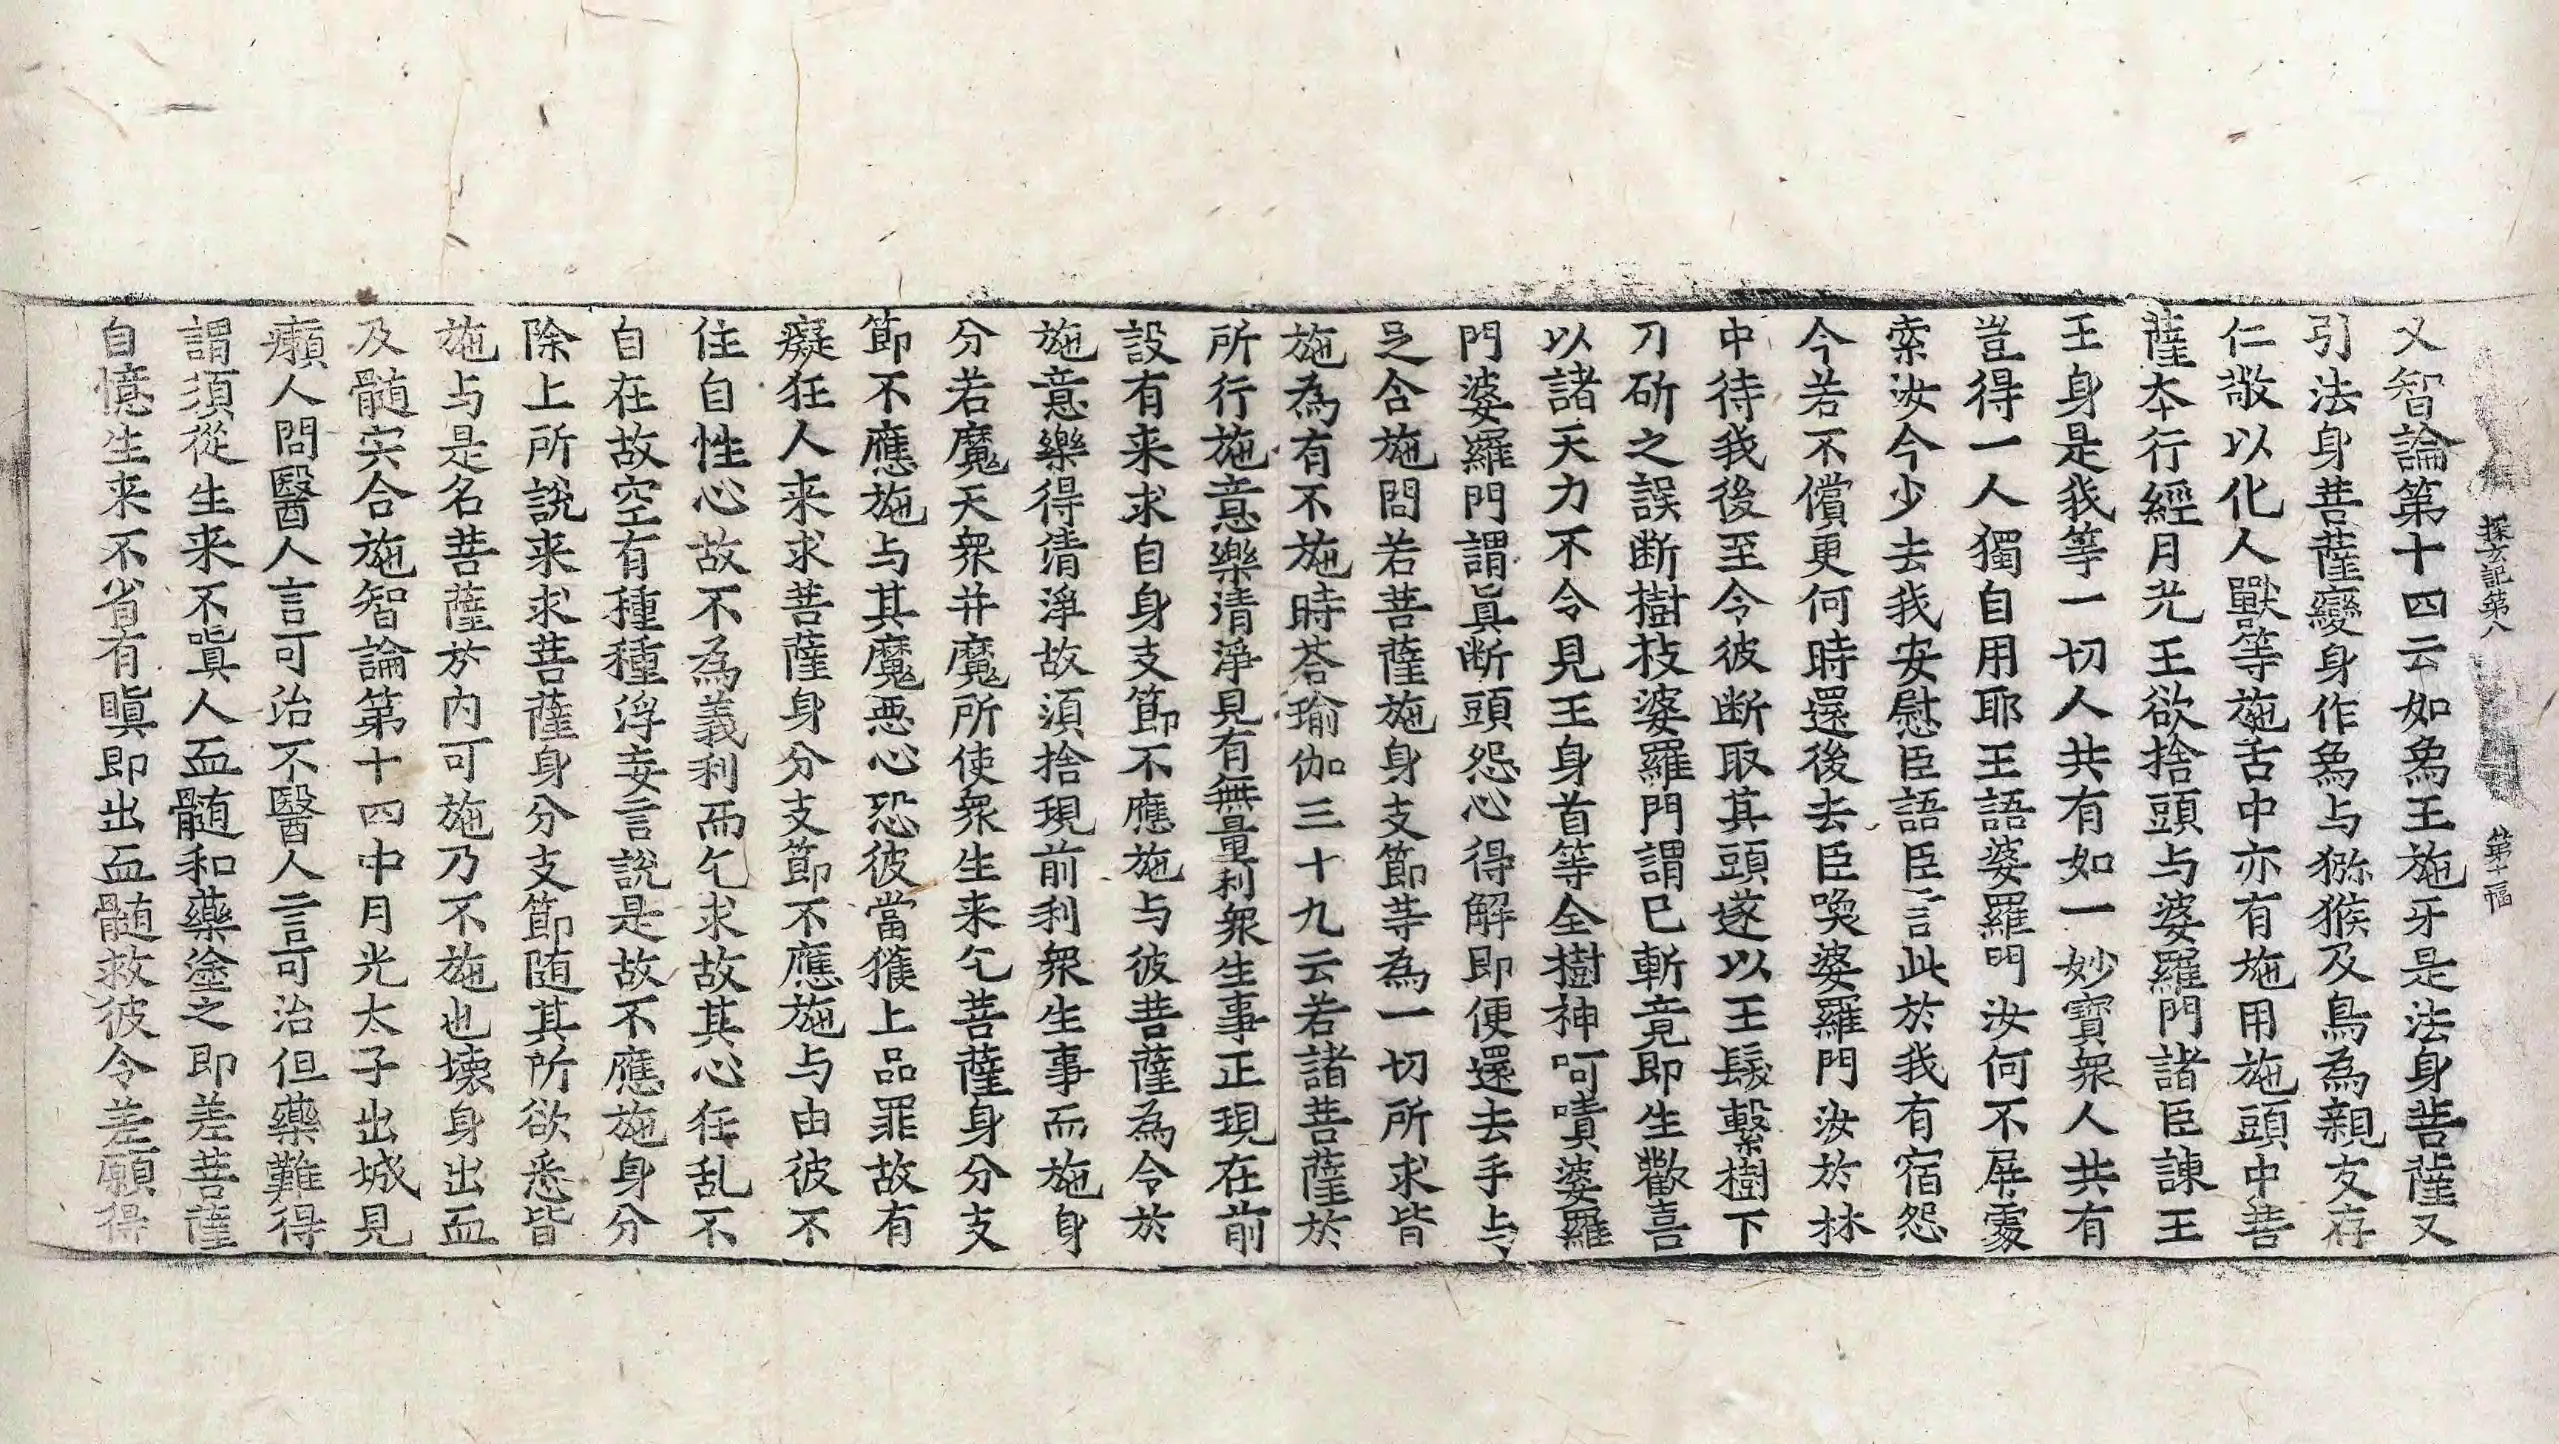 探玄記第八　第十二幅
又智論第十四云如為王施牙是法身菩薩又
引法身菩薩變身作為与獼猴及鳥為親友存
仁敬以化人獸等施舌中亦有施用施頭中菩
薩本行經月光王欲捨頭与婆羅門諸臣諫王
王身是我等一切人共有如一妙寶衆人共有
豈得一人獨自用耶王語婆羅門汝何不屏處
索汝今少去我安慰臣語臣言此於我有宿怨
今若不償更何時還後去臣喚婆羅門汝於林
中待我後至令彼断取其頭遂以王髮繫樹下
刀斫之誤断樹枝婆羅門謂已斬竟即生歡喜
以諸天力不令見王身首等全樹神呵嘖婆羅
門婆羅門謂真断頭怨心得解即便還去手与
足含施問若菩薩施身支節等為一切所求皆
施為有不施時荅瑜伽三十九云若諸菩薩於
所行施意樂清淨見有無量利衆生事正現在前
設有来求自身支節不應施与彼菩薩為令於
施意樂得清淨故湏捨現前利衆生事而施身
分若魔天衆并魔所使衆生来乞菩薩身分支
節不應施与其魔悪心恐彼當獲上品罪故有
癡狂人来求菩薩身分支節不應施与由彼不
住自性心故不為義利而乞求故其心狂乱不
自在故空有種種浮妄言說是故不應施身分
除上所說来求菩薩身分支節随其所欲悉皆
施与是名菩薩於内可施乃不施也壊身出血
及髓宍合施智論第十四中月光太子出城見
癩人問醫人言可治不醫人言可治但藥難得
謂須從生来不嗔人血髓和藥塗之即差菩薩
自憶生来不省有瞋即出血髓救彼令差願得